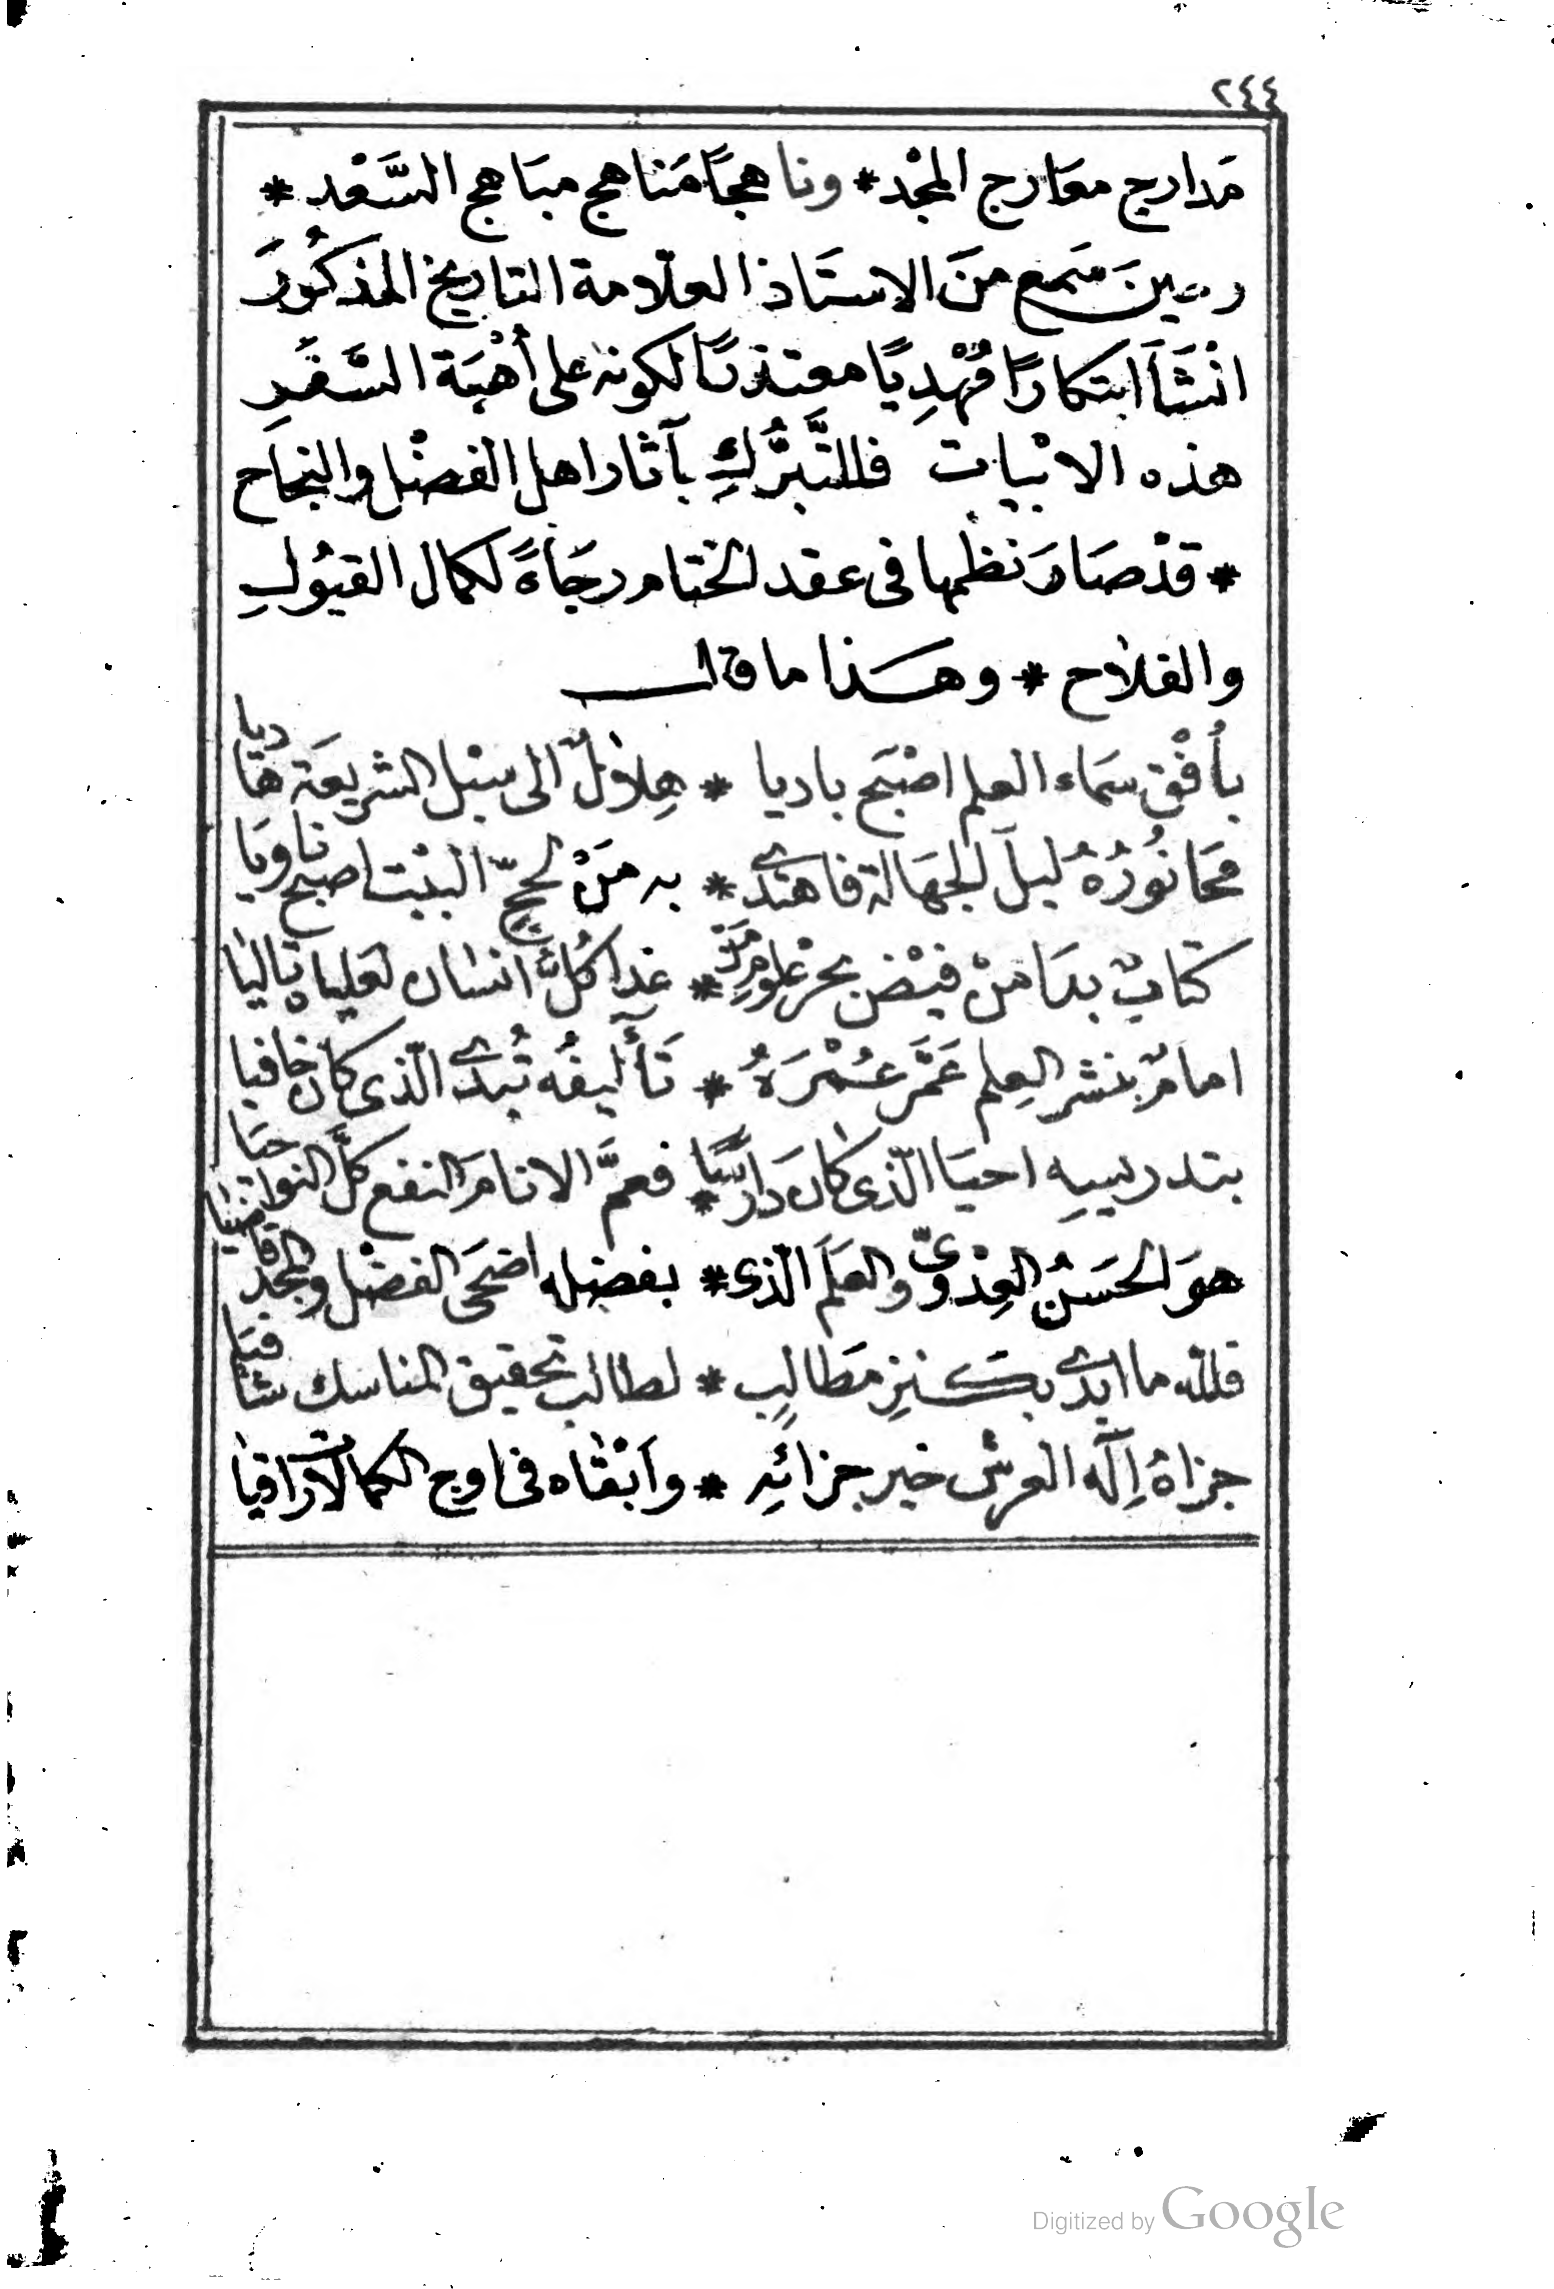 ٢٤٤
مَدارج معَارج المجْد * وناهجًا مَناهج مبَاهج السَّعْد *
وحينَ سَمع منَ الاستَاذ العلّامة التاريخ المذكُورَ
انْشَأَ ابتكارًا مُهْدِيًا معتذرًا لكونه على أُهْبَة السَّفَرِ
هذه الابْيات فللتَّبرُّكِ بآثار اهل الفضْل والنجاح
* قدْ صَارَ نظمها فى عقد الختام رجَاءً لكمال القبُولِ
والفلاح * وهَذا ما قال
بأُفْق سَماء العلم اصْبَح باديا * هِلالٌ الى سبْل الشريعَة هَاديا
مَحَا نُورُهُ ليلَ الجهَالة فاهتدى * به مَنْ لحجّ البيْت اصبح ناويَا
كتابٌ بدَا منْ فيْض بحر علومِ مَنْ * غدا كُلُّ انسان لعلياه تاليا
امامٌ بنشر العِلم عَمَّر عُمْرَهُ * تَأليفُه تُبدى الّذى كان خافيا
بتدريسِهِ احيَا الّذى كان دَارسًا * فعمَّ الانامَ النفع كلَّ النواحيَا
هوَ الحَسَنُ العِدْوىّ والعَلَم الّذى * بفضله اضحَى الفضْل والمجد قاضيا
فللّه ما ابدى بكَنزِ مَطالبٍ * لطالب تحقيق المناسك شافيَا
جزاهُ اِلَه العرش خير جزائِه * وابْقاه فى اوج الكمالات راقيا
Digitized by Google